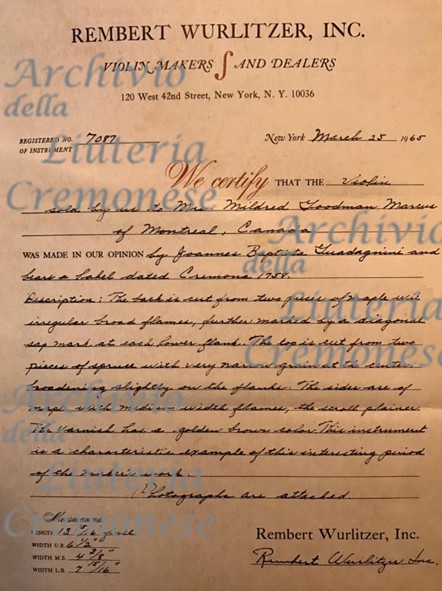 REMBERT WURLITZER, INC.
VIOLIN MAKERS AND DEALERS
120 West 42nd Street, New York, N. Y. 10036
REGISTERED NO. OF INSTRUMENT 7087
New York March 25 1965
We certify THAT THE Violin
sold by us to Mrs. Mildred Goodman Marcus
of Montreal, Canada
WAS MADE IN OUR OPINION by Joannes Baptista Guadagnini and
bears a label dated Cremona 1758.
Description: The back is cut from two pieces of maple with
irregular broad flames, further marked by a diagonal
sap mark at each lower flank. The top is cut from two
pieces of spruce with very narrow grain at the center
broadening slightly on the flanks. The sides are of
maple with medium width flames, the scroll plainer.
The varnish has a golden brown color. This instrument
is a characteristic example of this interesting period
of the maker's work.
Photographs are attached.
Measurements
LENGTH 13 15/16" full
WIDTH U.B. 6 1/2"
WIDTH M.B. 4 3/8"
WIDTH L.B. 7 15/16"
Rembert Wurlitzer, Inc.
Rembert Wurlitzer Inc.
Archivio
della
Liuteria
Cremonese
Archivio
della
Liuteria
Cremonese
Archivio
della
Liuteria
Cremonese